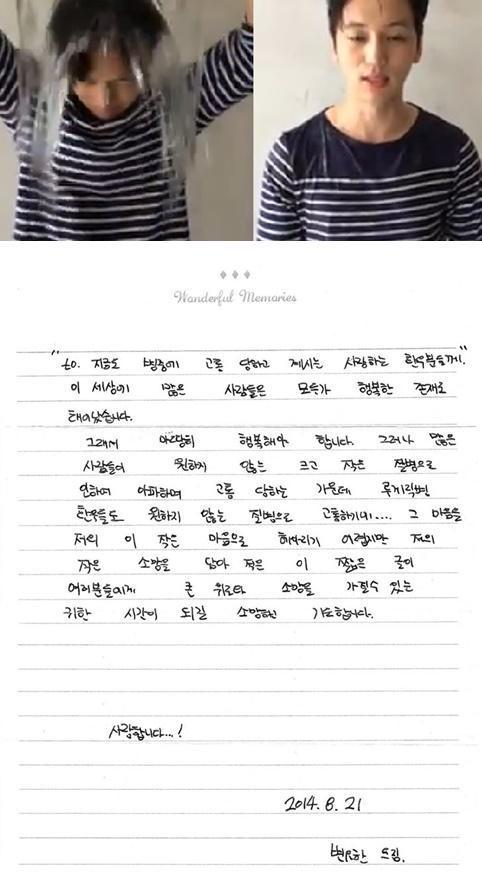 Wonderful Memories
" to. 지금도 병중에 고통 당하고 계시는 사랑하는 환우분들께. "
이 세상에 많은 사람들은 모두가 행복한 존재로
태어났습니다.
그래서 마땅히 행복해야 합니다. 그러나 많은
사람들이 원하지 않는 크고 작은 질병으로
인하여 아파하며 고통 당하는 가운데 루게릭병
환우들도 원하지 않는 질병으로 고통하기에.... 그 마음을
저의 이 작은 마음으로 헤아리기 어렵지만 저의
작은 소망을 담아 적은 이 짧은 글이
여러분들에게 큰 위로와 소망을 가질수 있는
귀한 시간이 되길 소망하며 기도합니다.
사랑합니다...!
2014. 8. 21
변요한 드림.